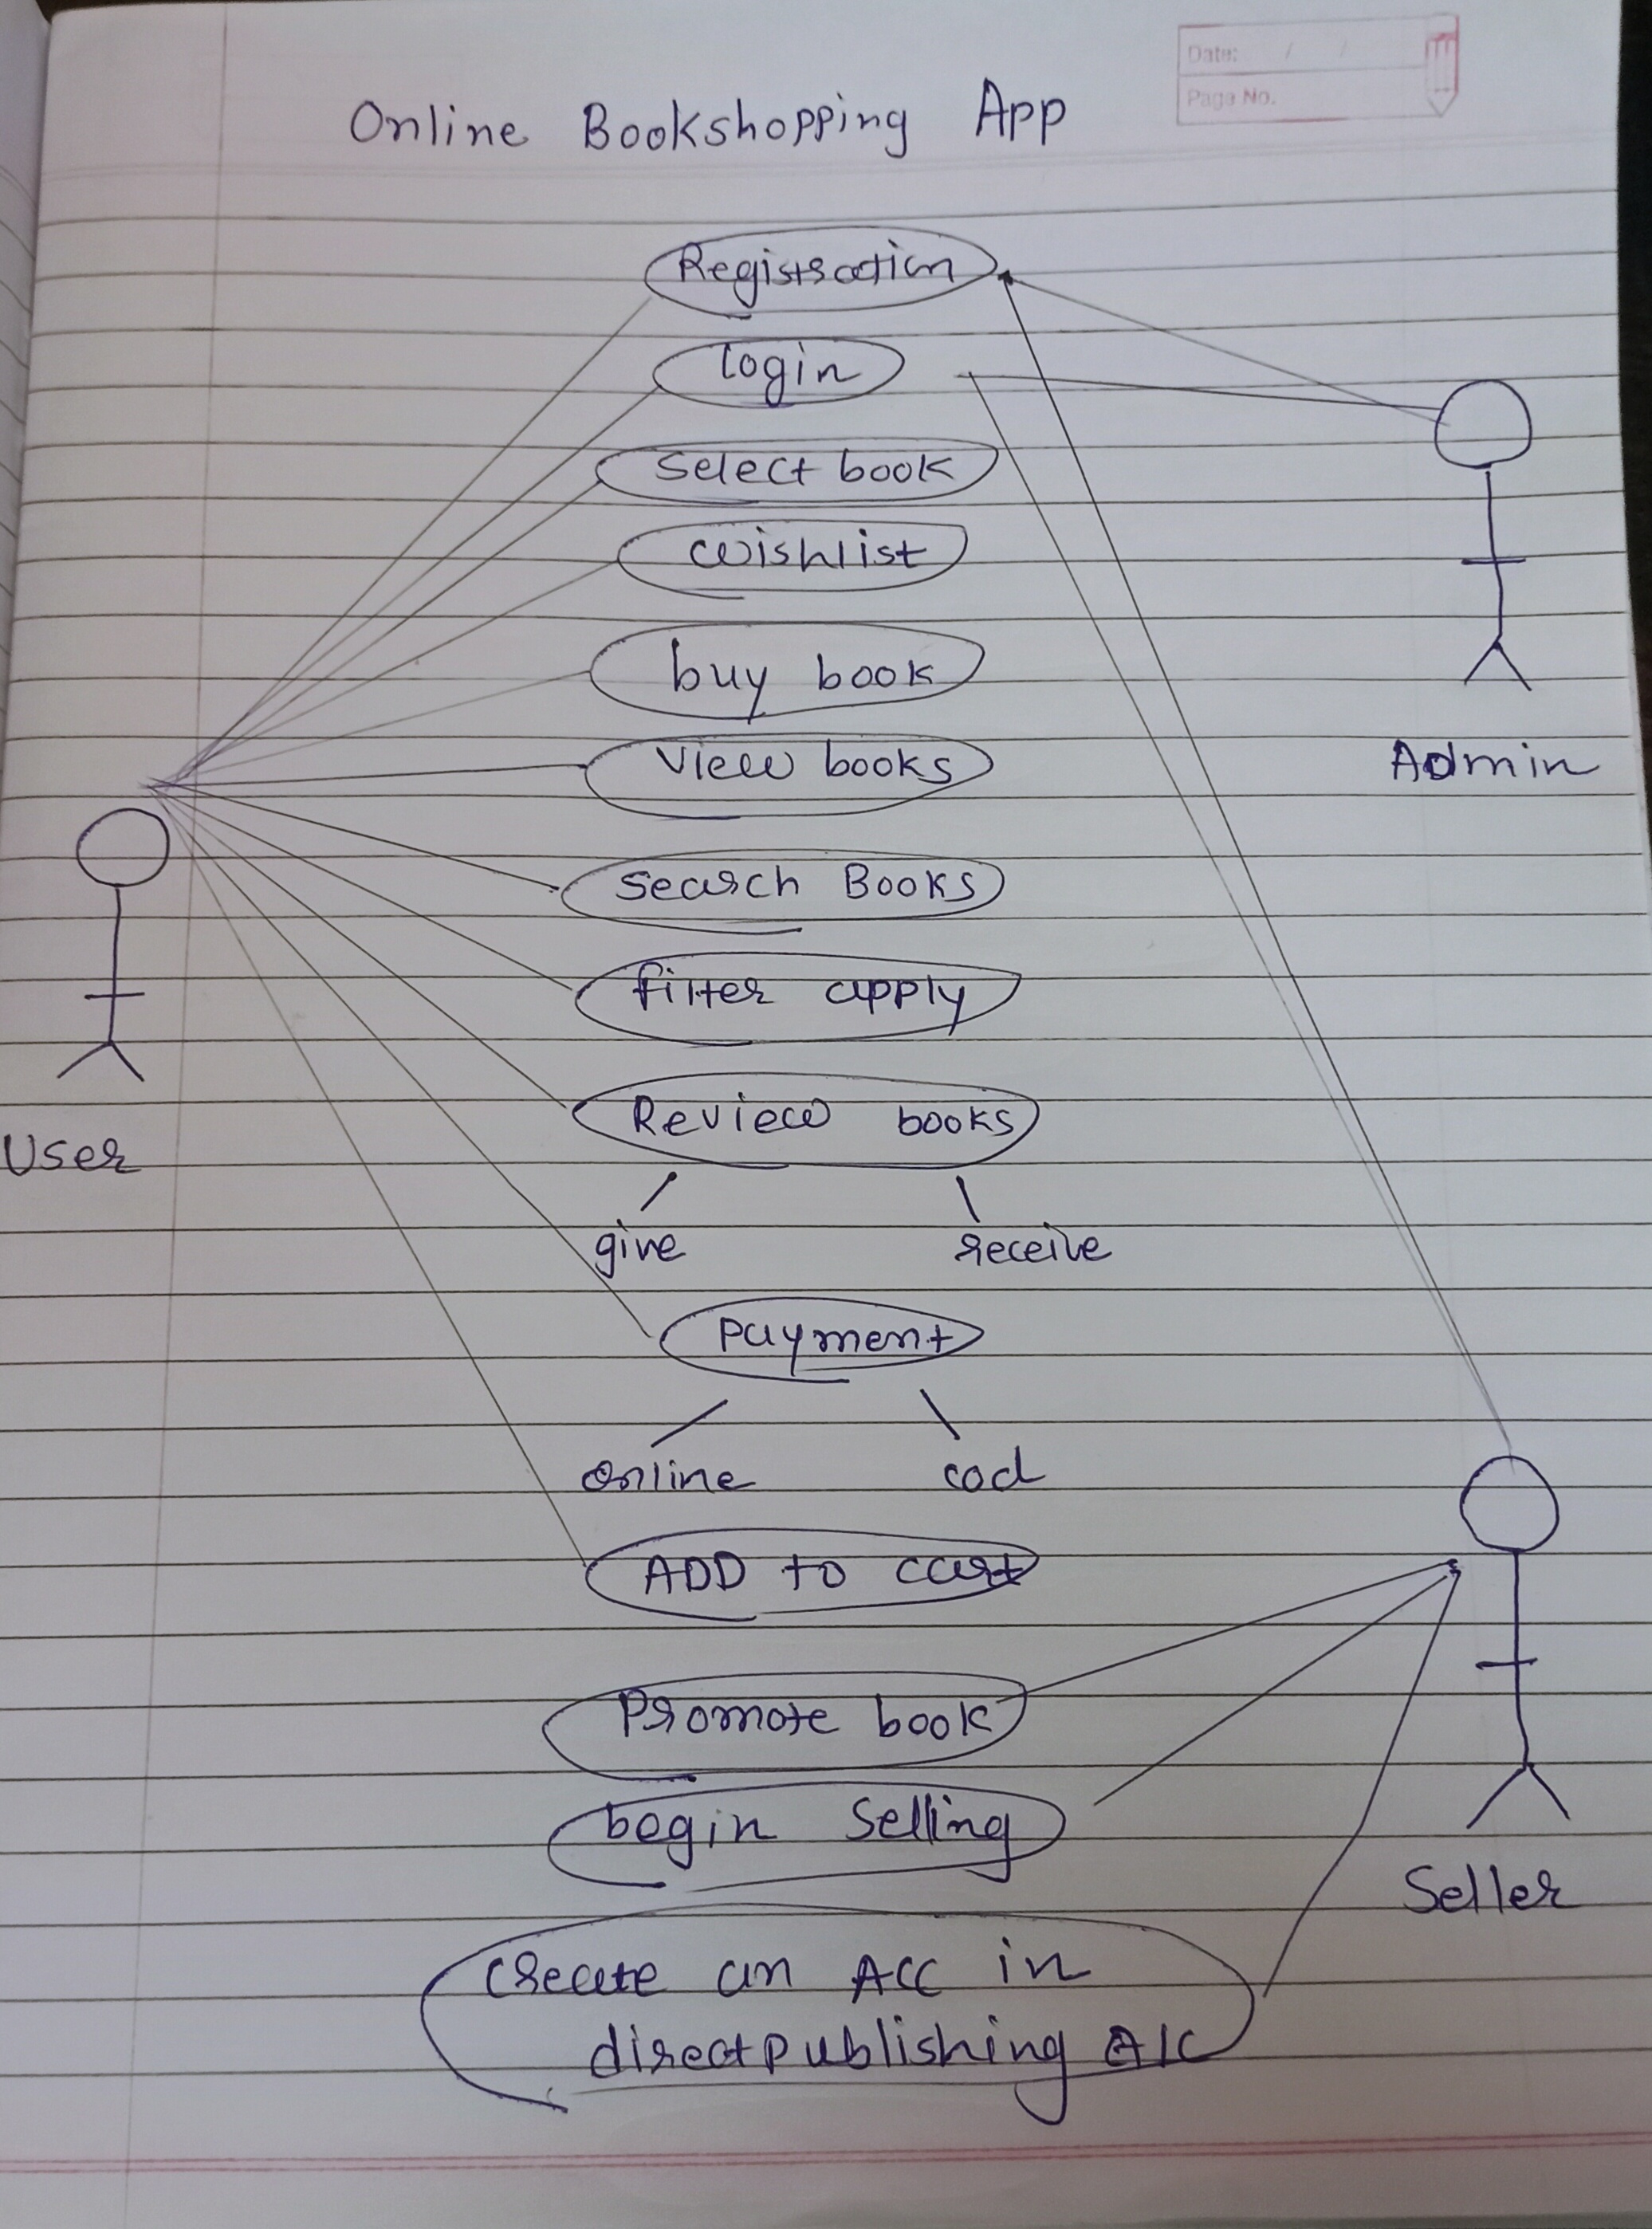 Date: / /
Page No.
Online Bookshopping App
Registration
login
Select book
wishlist
buy book
View books
Admin
Search Books
filter apply
Review books
User
give receive
Payment
online cod
ADD to cart
Promote book
begin Selling
Seller
Create an Acc in
directpublishing A/C